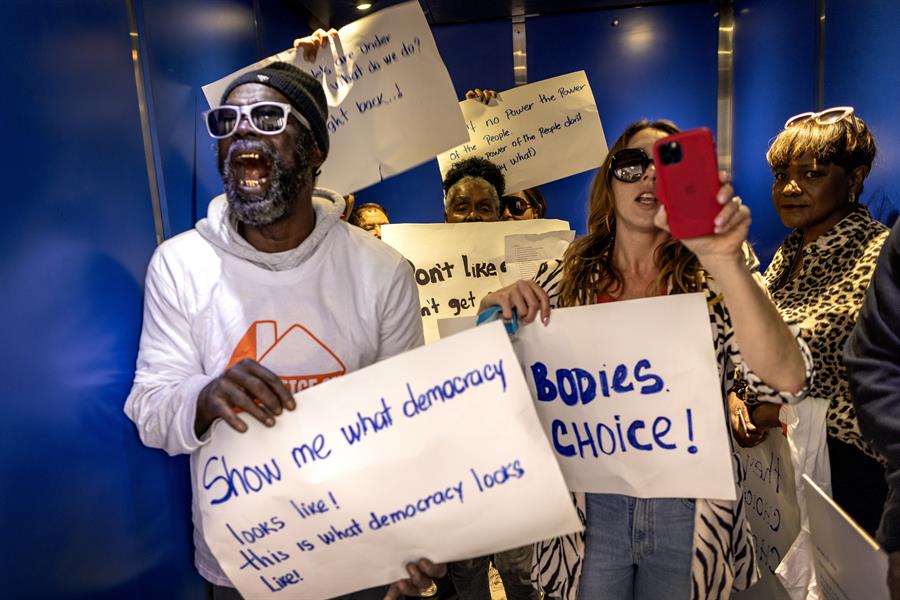 are under
what do we do?
ght back...!
no Power the Power
Of the People.
power of the People don't
what)
on't like
n't get
BODIES.
CHOICE!
Show me what democracy
looks like!
this is what democracy looks
Like!